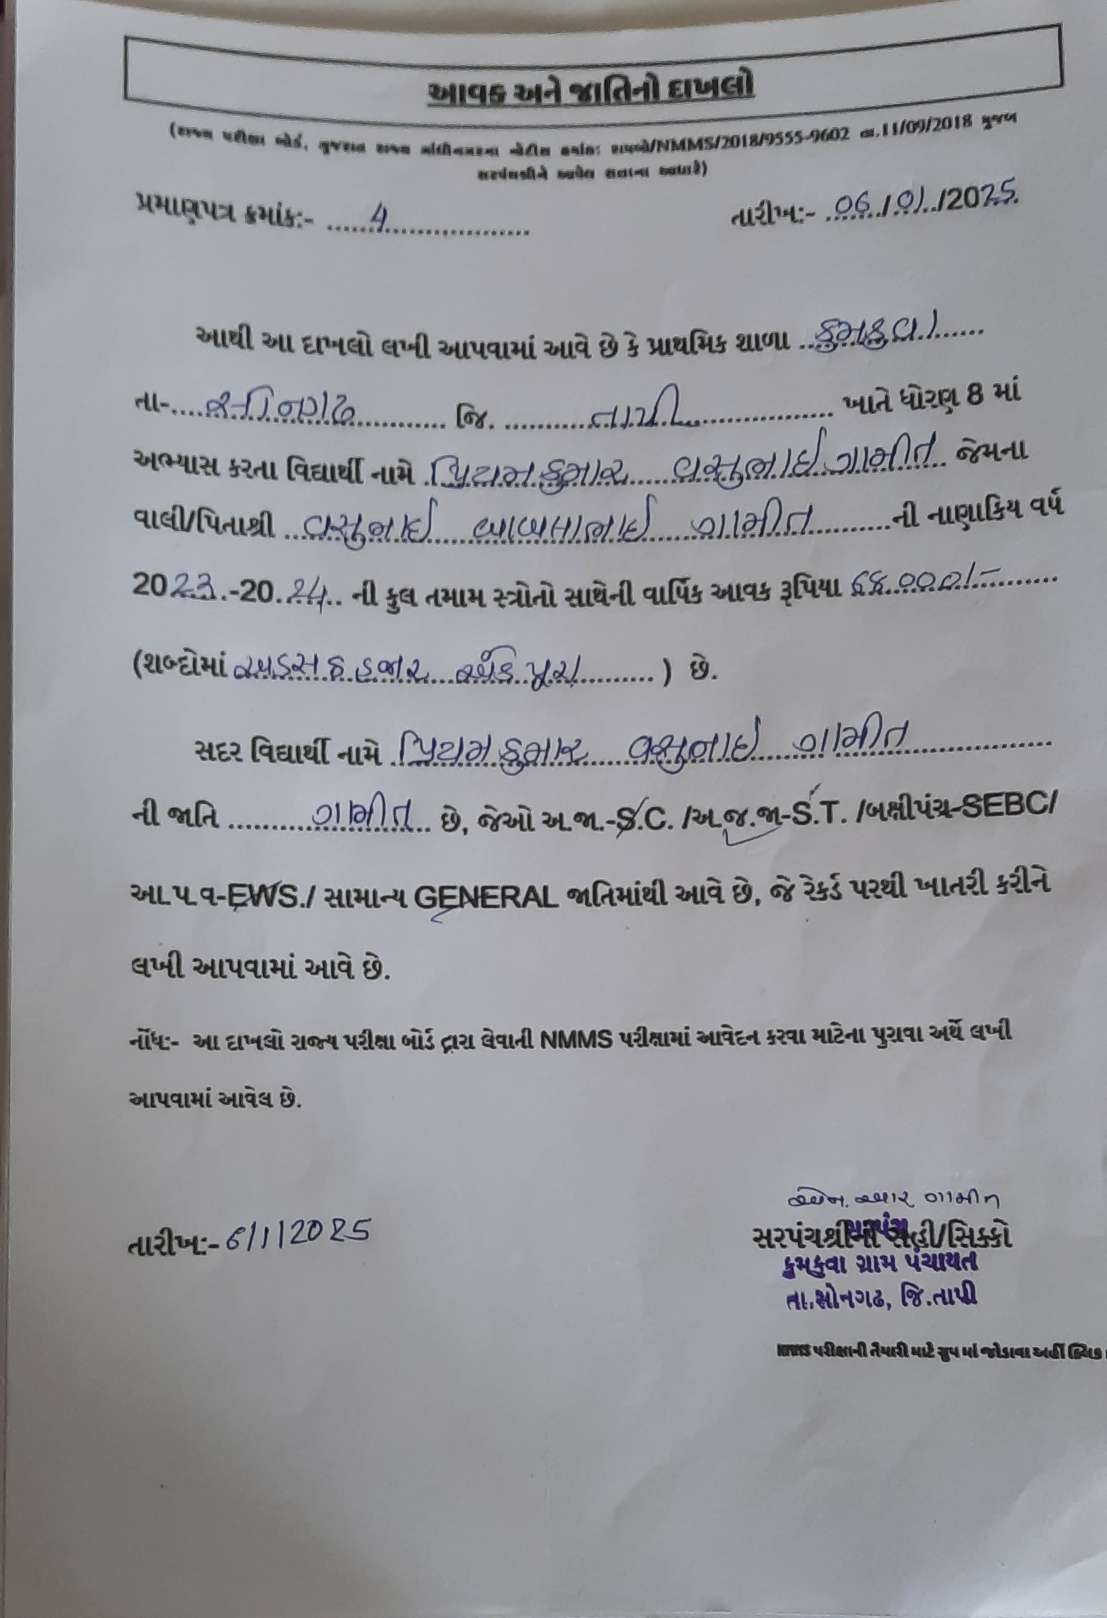 આવક અને જાતિનો દાખલો
(રાજ્ય પરીક્ષા બોર્ડ, ગુજરાત રાજ્ય ગાંધીનગરના નોટીસ ક્રમાંક: રાપબો/NMMS/2018/9555-9602 તા.11/09/2018 મુજબ
સરપંચશ્રીને આપેલ સત્તાના આધારે)
પ્રમાણપત્ર ક્રમાંક:- ....4.................. તારીખ:- 06/01/2025
આથી આ દાખલો લખી આપવામાં આવે છે કે પ્રાથમિક શાળા ..કુમકુવા......
તા-....સોનગઢ............ જિ. ..........તાપી................ ખાતે ધોરણ 8 માં
અભ્યાસ કરતા વિદ્યાર્થી નામે .પ્રિયમકુમાર....વસુભાઇ.ગામીત.. જેમના
વાલી/પિતાશ્રી ..વસુભાઇ ... ગામીત..........ની નાણાકિય વર્ષ
2023.-20.24.. ની કુલ તમામ સ્ત્રોતો સાથેની વાર્ષિક આવક રૂપિયા ૬૮૦૦૦/-..........
(શબ્દોમાં અડસઠ હજાર અંકે પુરા..........) છે.
સદર વિદ્યાર્થી નામે .પ્રિયમકુમાર....વસુભાઇ....ગામીત..............
ની જાતિ ..........ગામીત.. છે, જેઓ અ.જા.-S.C. /અ.જ.જા-S.T. /બક્ષીપંચ-SEBC/
આ.પ.વ-EWS./ સામાન્ય GENERAL જાતિમાંથી આવે છે, જે રેકર્ડ પરથી ખાતરી કરીને
લખી આપવામાં આવે છે.
નોંધ:- આ દાખલો રાજ્ય પરીક્ષા બોર્ડ દ્વારા લેવાની NMMS પરીક્ષામાં આવેદન કરવા માટેના પુરાવા અર્થે લખી
આપવામાં આવેલ છે.
એન. આર ગામીત
તારીખ:- 6/1/2025 સરપંચશ્રીની સહી/સિક્કો
સરપંચ
કુમકુવા ગ્રામ પંચાયત
તા.સોનગઢ, જિ.તાપી
NMMS પરીક્ષાની તૈયારી માટે ગ્રુપ માં જોડાવા અહીં ક્લિક